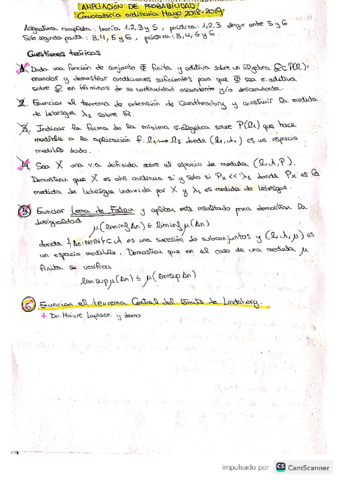 AMPLIACIÓN DE PROBABILIDAD
Convocatoria ordinaria Mayo 2018-2019
Asignatura completa: teoría 1,2,3 y 5, práctica: 1,2,3 elegir entre 5 y 6
Solo segunda parte: 3,4,5 y 6, práctica: 3,4,5 y 6.
Cuestiones teóricas
1. Dada una función de conjunto Φ finita y aditiva sobre un álgebra
enunciar y demostrar condiciones suficientes para que Φ sea σ-aditiva
sobre en términos de su continuidad ascendente y/o descendente.
2. Enunciar el teorema de extensión de Caratheodory y construir la medida
de Lebesgue sobre R.
3. Indicar la forma de la mínima σ-álgebra sobre que hace
medible a la aplicación donde es un espacio
medible dado.
4. Sea X una v.a. definida sobre el espacio de medida
Demostrar que X es abs. continua si y solo si donde Px es la
medida de Lebesgue inducida por X y es medida de Lebesgue.
5. Enunciar Lema de Fatou y aplicar este resultado para demostrar la
desigualdad
μ(liminf An) ≤ liminf μ(An)
donde es una sucesión de subconjuntos y es
un espacio medible. Demostrar que en el caso de una medida μ
finita se verifica
limsup μ(An) ≤ μ(limsup An)
6. Enunciar el teorema Central del límite de Lindeberg.
De Moivre Laplace y demo
impulsado por CS CamScanner